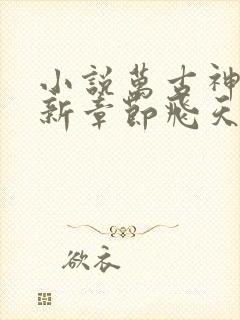 小説萬古神
新章節飛天
欲衣